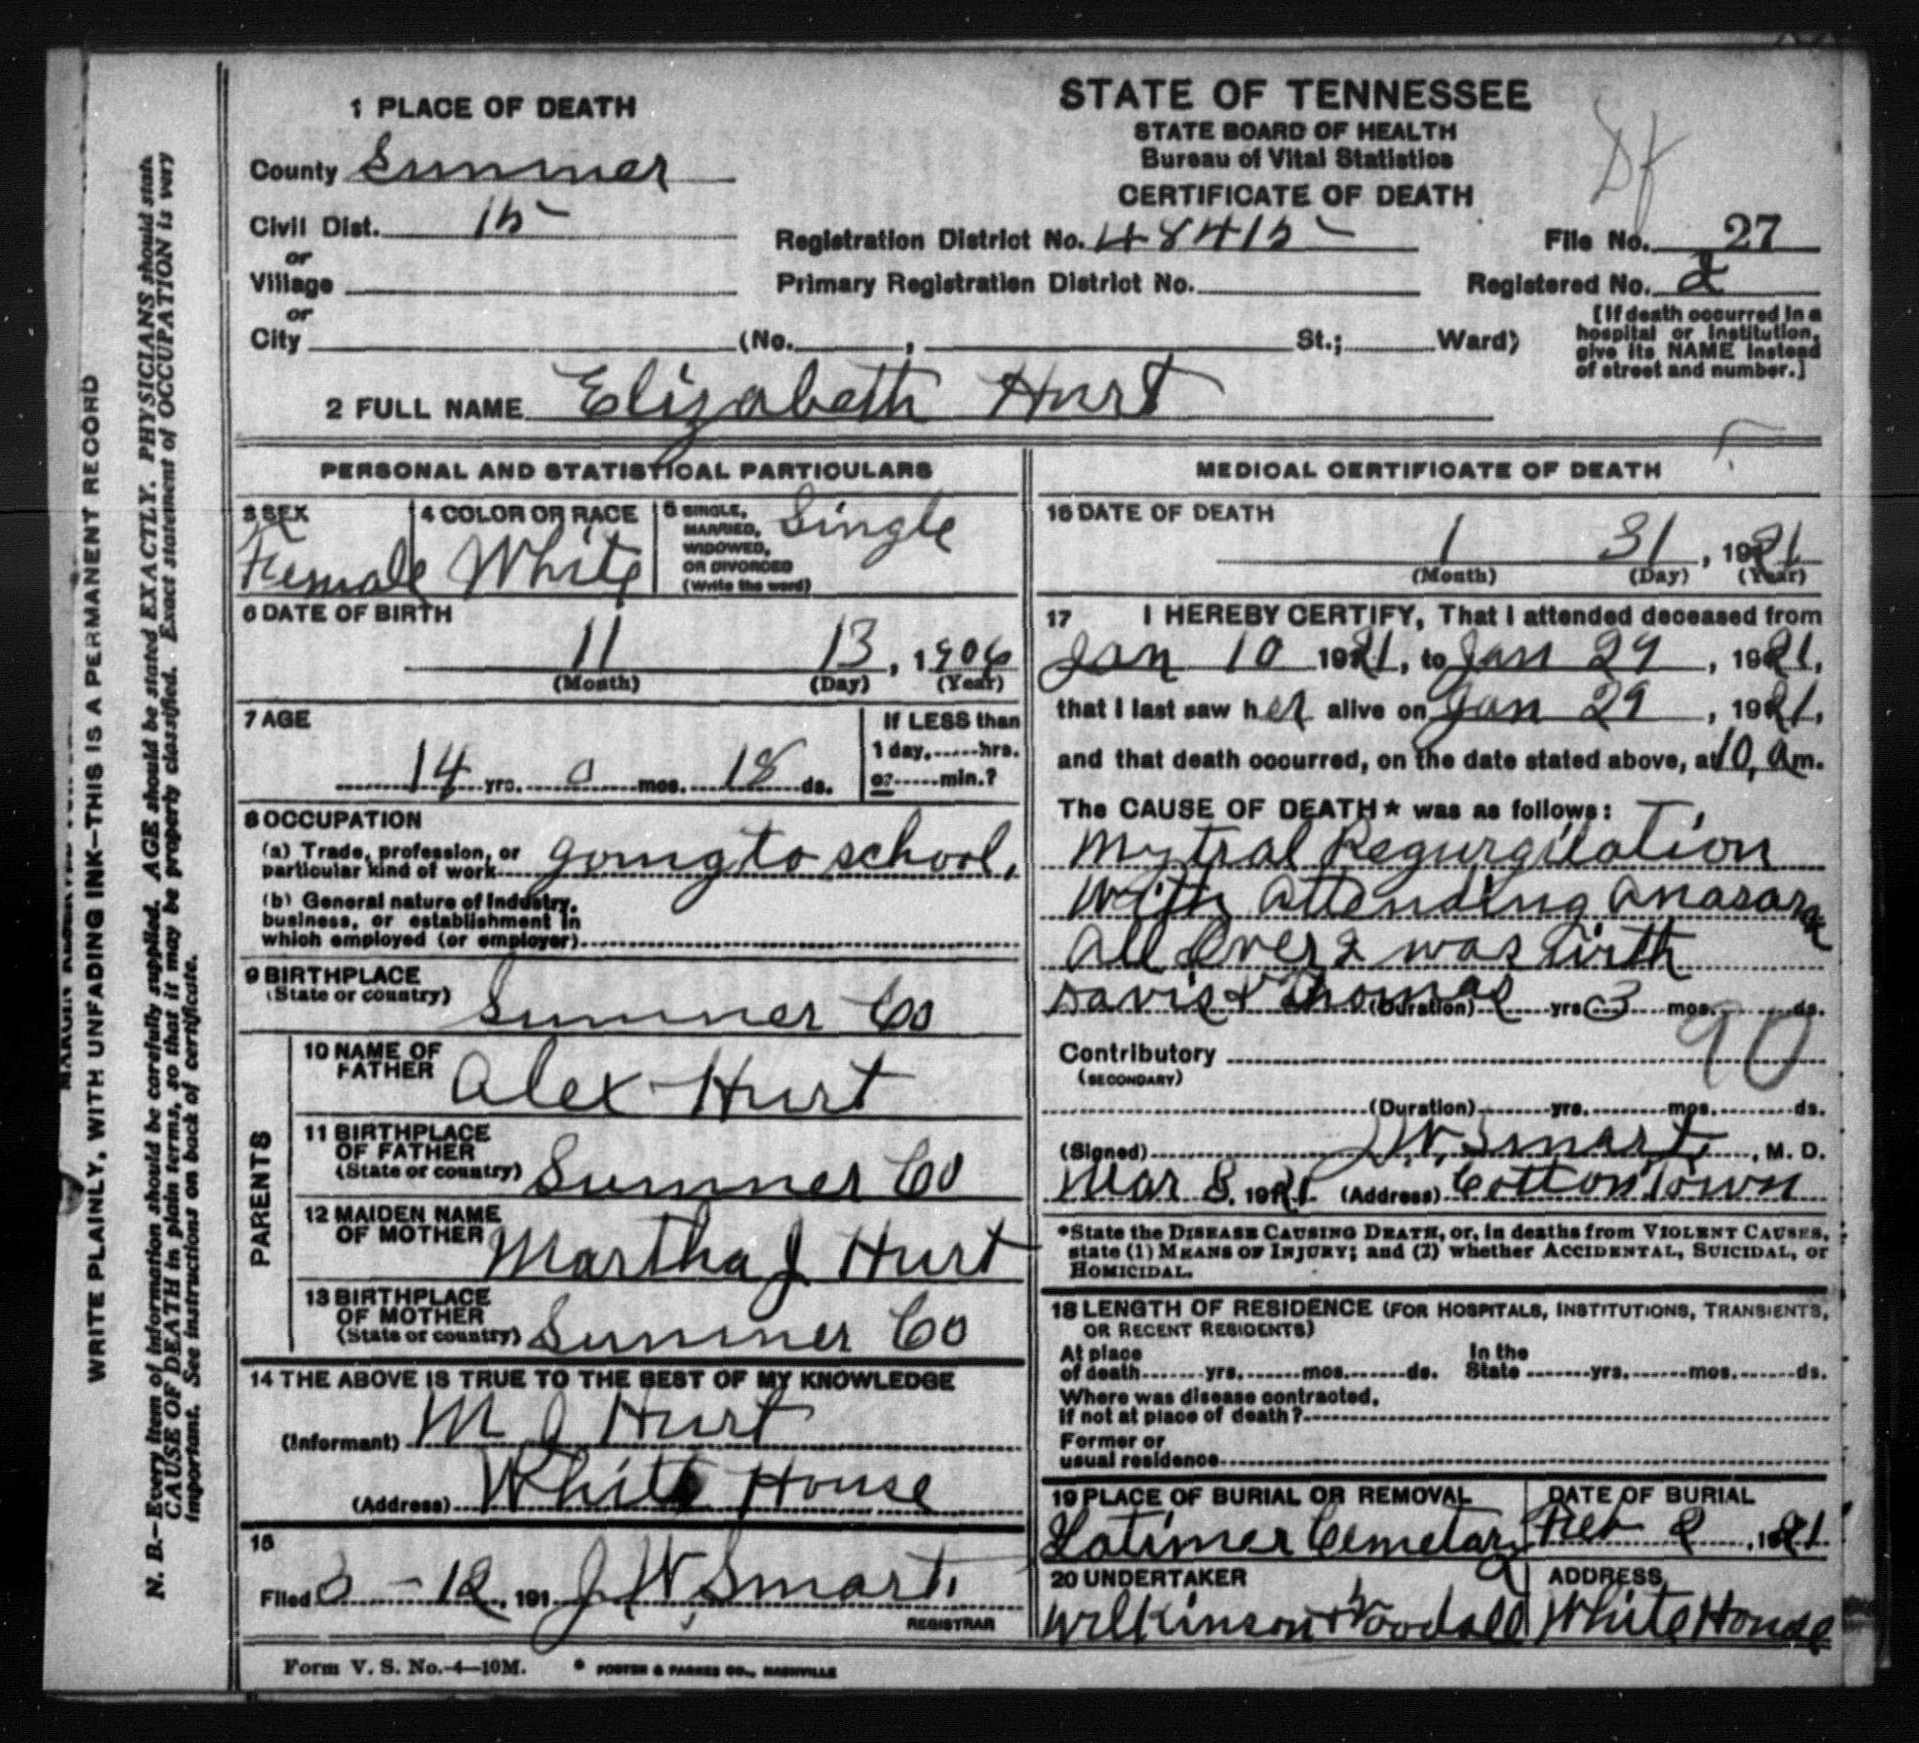 1 PLACE OF DEATH
County Sumner
Civil Dist. 15
or
Village
or
City (No. , St.; Ward)
STATE OF TENNESSEE
STATE BOARD OF HEALTH
Bureau of Vital Statistics
CERTIFICATE OF DEATH
Registration District No. 48415
File No. 27
Primary Registration District No.
Registered No. 2
[If death occurred in a
hospital or institution,
give its NAME instead
of street and number.]
2 FULL NAME Elizabeth Hurt
PERSONAL AND STATISTICAL PARTICULARS
3 SEX
Female
4 COLOR OR RACE
White
5 SINGLE,
MARRIED,
WIDOWED,
OR DIVORCED
(Write the word)
Single
6 DATE OF BIRTH
11 13, 1906
(Month) (Day) (Year)
7 AGE
14 yrs. 0 mos. 18 ds.
If LESS than
1 day, hrs.
or min.?
8 OCCUPATION
(a) Trade, profession, or
particular kind of work going to school,
(b) General nature of Industry,
business, or establishment in
which employed (or employer)
9 BIRTHPLACE
(State or country) Sumner Co
PARENTS
10 NAME OF
FATHER Alex Hurt
11 BIRTHPLACE
OF FATHER
(State or country) Sumner Co
12 MAIDEN NAME
OF MOTHER Martha J Hurt
13 BIRTHPLACE
OF MOTHER
(State or country) Sumner Co
14 THE ABOVE IS TRUE TO THE BEST OF MY KNOWLEDGE
(Informant) M J Hurt
(Address) White House
15
Filed 3-12, 191 J. W. Smart,
REGISTRAR
MEDICAL CERTIFICATE OF DEATH
16 DATE OF DEATH
1 31, 1921
(Month) (Day) (Year)
17 I HEREBY CERTIFY, That I attended deceased from
Jan 10 1921, to Jan 29, 1921,
that I last saw her alive on Jan 29, 1921,
and that death occurred, on the date stated above, at 10, am.
The CAUSE OF DEATH* was as follows:
Mytral Regurgitation
With attending anasarca
all over & was with
Davis & Thomas (Duration) yrs 3 mos. ds.
Contributory 90
(SECONDARY)
(Duration) yrs. mos. ds.
(Signed) J. W. Smart, M. D.
Mar 8, 1921 (Address) Cotton Town
*State the DISEASE CAUSING DEATH, or, in deaths from VIOLENT CAUSES,
state (1) MEANS OF INJURY; and (2) whether ACCIDENTAL, SUICIDAL, or
HOMICIDAL.
18 LENGTH OF RESIDENCE (FOR HOSPITALS, INSTITUTIONS, TRANSIENTS,
OR RECENT RESIDENTS)
At place
of death yrs. mos. ds.
In the
State yrs. mos. ds.
Where was disease contracted,
if not at place of death?
Former or
usual residence
19 PLACE OF BURIAL OR REMOVAL
Latimer Cemetary
DATE OF BURIAL
Feb 2, 1921
20 UNDERTAKER
Wilkinson & Woodall
ADDRESS
White House
Form V. S. No.-4-10M.
FOSTER & PARKES CO., NASHVILLE
WRITE PLAINLY, WITH UNFADING INK—THIS IS A PERMANENT RECORD
N. B.—Every item of information should be carefully supplied. AGE should be stated EXACTLY. PHYSICIANS should state
CAUSE OF DEATH in plain terms, so that it may be properly classified. Exact statement of OCCUPATION is very
important. See instructions on back of certificate.